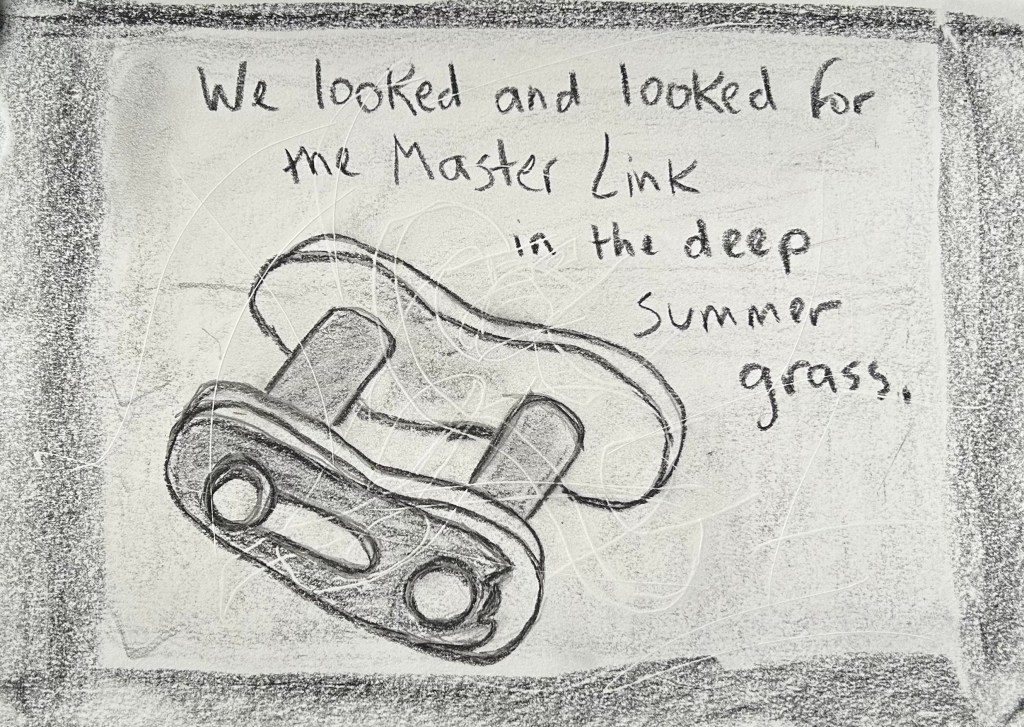 We looked and looked for
the Master Link
in the deep
summer
grass.